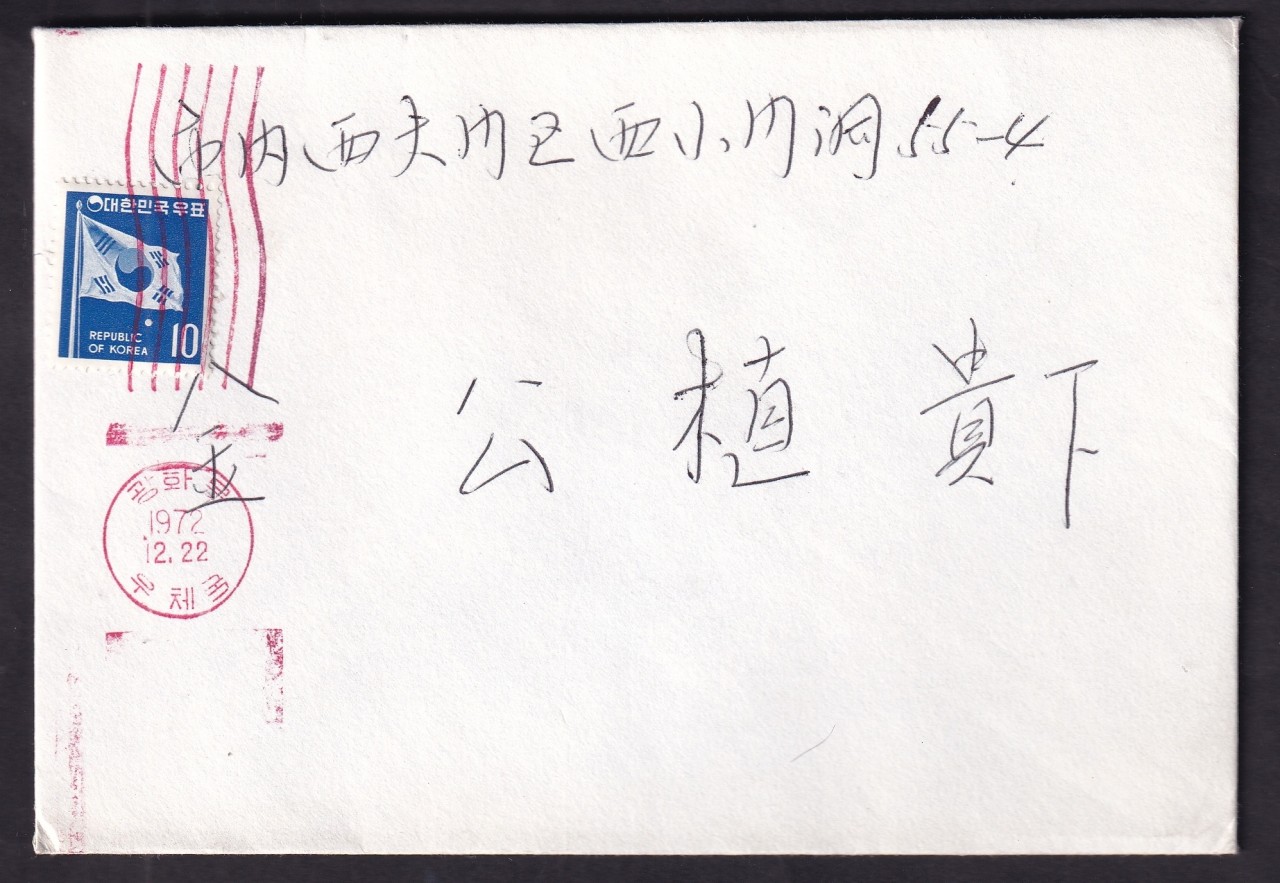 市内西大门区西小门洞55-4
대한민국우표
REPUBLIC
OF KOREA 10
金 公 植 貴下
광화문
1972
12.22
우체국